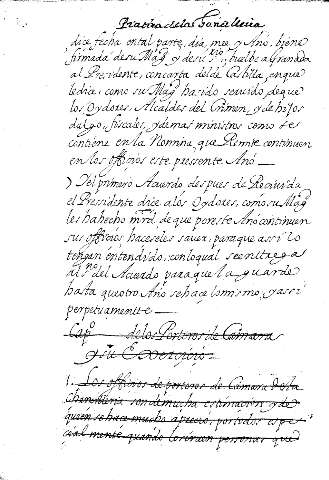 Practica de la Chancilleria
dize, fecha en tal parte, dia, mes y Año, biene
firmada de su Mag.d y de su S.rio, buelve a Granada
al Presidente, con carta del de Castilla, en que
le dize como su Mag.d ha sido servido, de que
los Oydores, Alcaldes del Crimen, y de hijos
dalgo, fiscales, y demas ministros como se
contiene en la Nomina, que Remite continuen
en los officios este pressente Año —
) Del primero Acuerdo des pues de Reciuida
el Presidente dize a los Oydores, como su Mag.d
les ha hecho mrd. de que por este Año continuen
sus officios haceseles saver, para que assi lo
tengan entendido, con lo qual se entrega
al S.rio del Acuerdo para que la guarde
hasta que otro Año se hace lo mismo, y assi
perpetuamente —
Cap.o de los Porteros de Camara
y su Exercicio
1. Los officios de porteros de Camara de esta
Chancilleria son de mucha estimacion y de
quien se hace mucho aprecio, por todos espe-
cial mente quando los siruen personas que